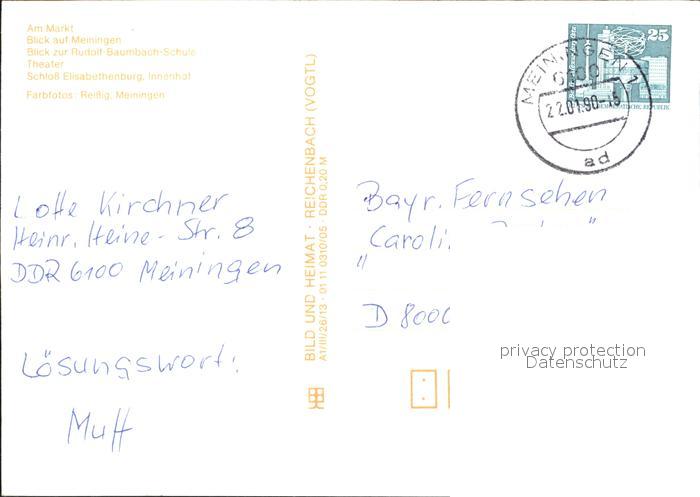 Am Markt
Blick auf Meiningen
Blick zur Rudolf-Baumbach-Schule
Theater
Schloß Elisabethenburg, Innenhof
Farbfotos: Reißig, Meiningen
Lotte Kirchner
Heinr. Heine - Str. 8
DDR 6100 Meiningen
Lösungswort:
Muff
BILD UND HEIMAT · REICHENBACH (VOGTL)
A1/III/26/13 · 01 11 0310/05 · DDR 0,20 M
25
MEININGEN 1
6100
22.01.90-15
ad
Bayr. Fernsehen
"Caroli
D 8000
privacy protection
Datenschutz